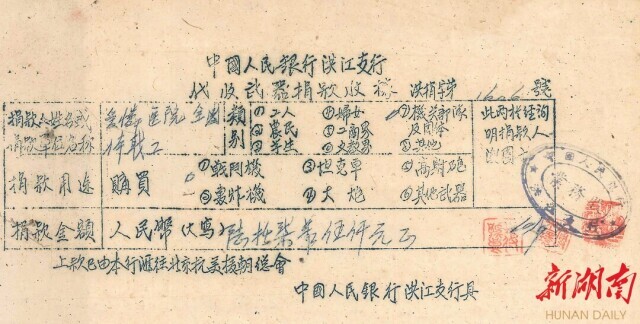 中國人民銀行洪江支行
代收武器捐款收據 洪捐字第1606號
捐款人姓名或捐款單位名称
愛德医院全體
職工
類別
①工人 ④婦女 ⑦機关部隊及团体
②農民 ⑤工商界 ⑧其他
③学生 ⑥文教界
此两栏经询明捐款人
捐款用途 購買
①戰鬥機 ③坦克車 ⑤高射砲
②轰炸機 ④大炮 ⑥其他武器
捐款金額 人民幣(大寫)陆拾柒萬伍仟元正
上款已由本行滙往北京抗美援朝總會
中國人民銀行洪江支行具
新湖南
HUNAN DAILY